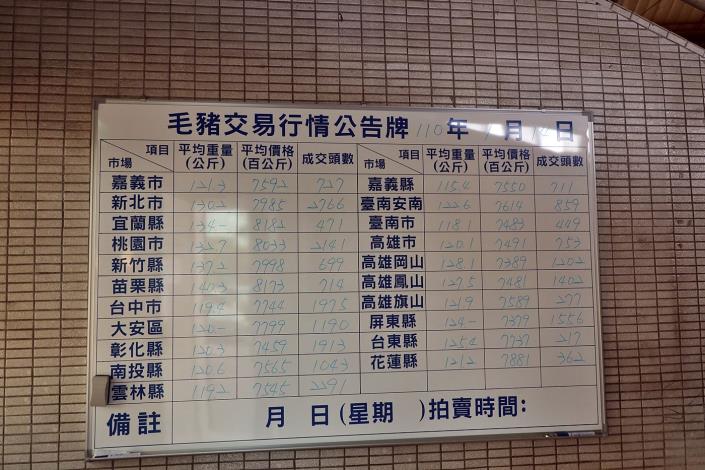 毛豬交易行情公告牌 110年 月 日
項目 市場 平均重量(公斤) 平均價格(百公斤) 成交頭數 項目 市場 平均重量(公斤) 平均價格(百公斤) 成交頭數
嘉義市 121.3 7592 727 嘉義縣 115.4 7550 711
新北市 130.2 7985 2766 臺南安南 122.6 7614 859
宜蘭縣 134- 8182 471 臺南市 118.1 7483 449
桃園市 132.7 8033 2141 高雄市 120.1 7491 753
新竹縣 137.2 7998 699 高雄岡山 128.1 7389 1202
苗栗縣 140.3 8173 714 高雄鳳山 127.5 7481 1402
台中市 119.4 7744 1975 高雄旗山 121.9 7589 277
大安區 120.- 7799 1190 屏東縣 124- 7379 1556
彰化縣 120.3 7459 1913 台東縣 125.4 7737 217
南投縣 120.6 7565 1043 花蓮縣 121.2 7881 362
雲林縣 119.2 7545 2291
備註 月 日(星期 )拍賣時間: